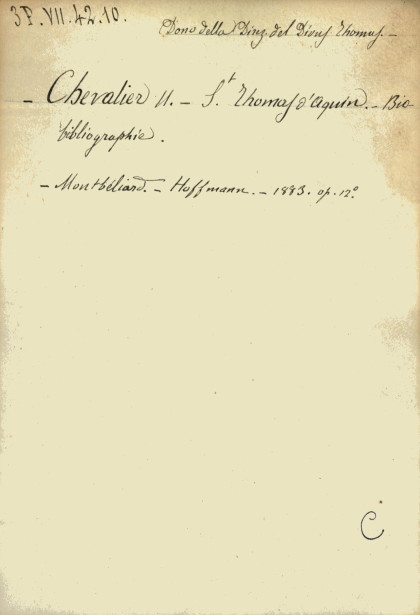 3P.VII.42.10.
Dono della Direz. del Divus Thomas. -
- Chevalier U. - S.t Thomas d'Aquin. - Bio-
bibliographie.
- Montbéliard. - Hoffmann. - 1883. op. 12.o
C